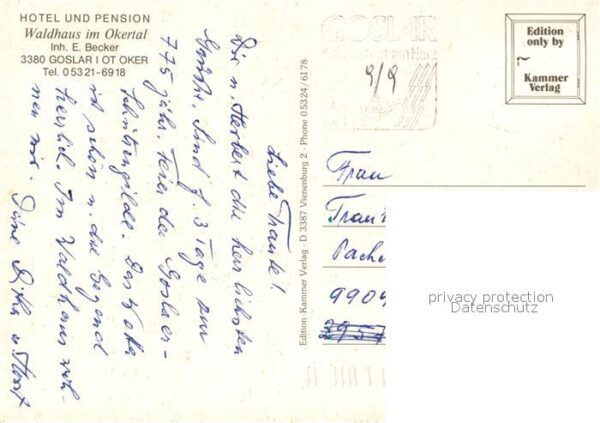 HOTEL UND PENSION
Waldhaus im Okertal
Inh. E. Becker
3380 GOSLAR I OT OKER
Tel. 0 53 21 - 69 18
Liebe Traute!
Dir u. Herbert die herzlichsten
Grüße. Sind f. 3 Tage zur
775 jähr. Feier der Goslaer-
Schützengilde. Das Wetter
ist schön u. die Gegend
herrlich. Im Waldhaus woh-
nen wir. Deine u. Horst
Edition · Kammer Verlag · D 3387 Vienenburg 2 · Phone 0 53 24 / 61 78
GOSLAR
9/9
Edition
only by
Kammer
Verlag
Frau
Trau
Pache
9904
3957
privacy protection
Datenschutz